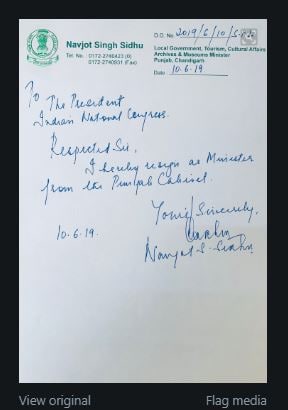 Navjot Singh Sidhu
Tel. No. : 0172-2740423 (O)
0172-2740931 (Fax)
D.O. No. 2019/6/10/
Local Government, Tourism, Cultural Affairs
Archives & Museums Minister
Punjab, Chandigarh
Date 10.6.19
To The President
Indian National Congress.
Respected Sir,
I hereby resign as Minister
from the Punjab Cabinet.
Yours Sincerely,
10.6.19.
Navjot S. Sidhu
View original
Flag media